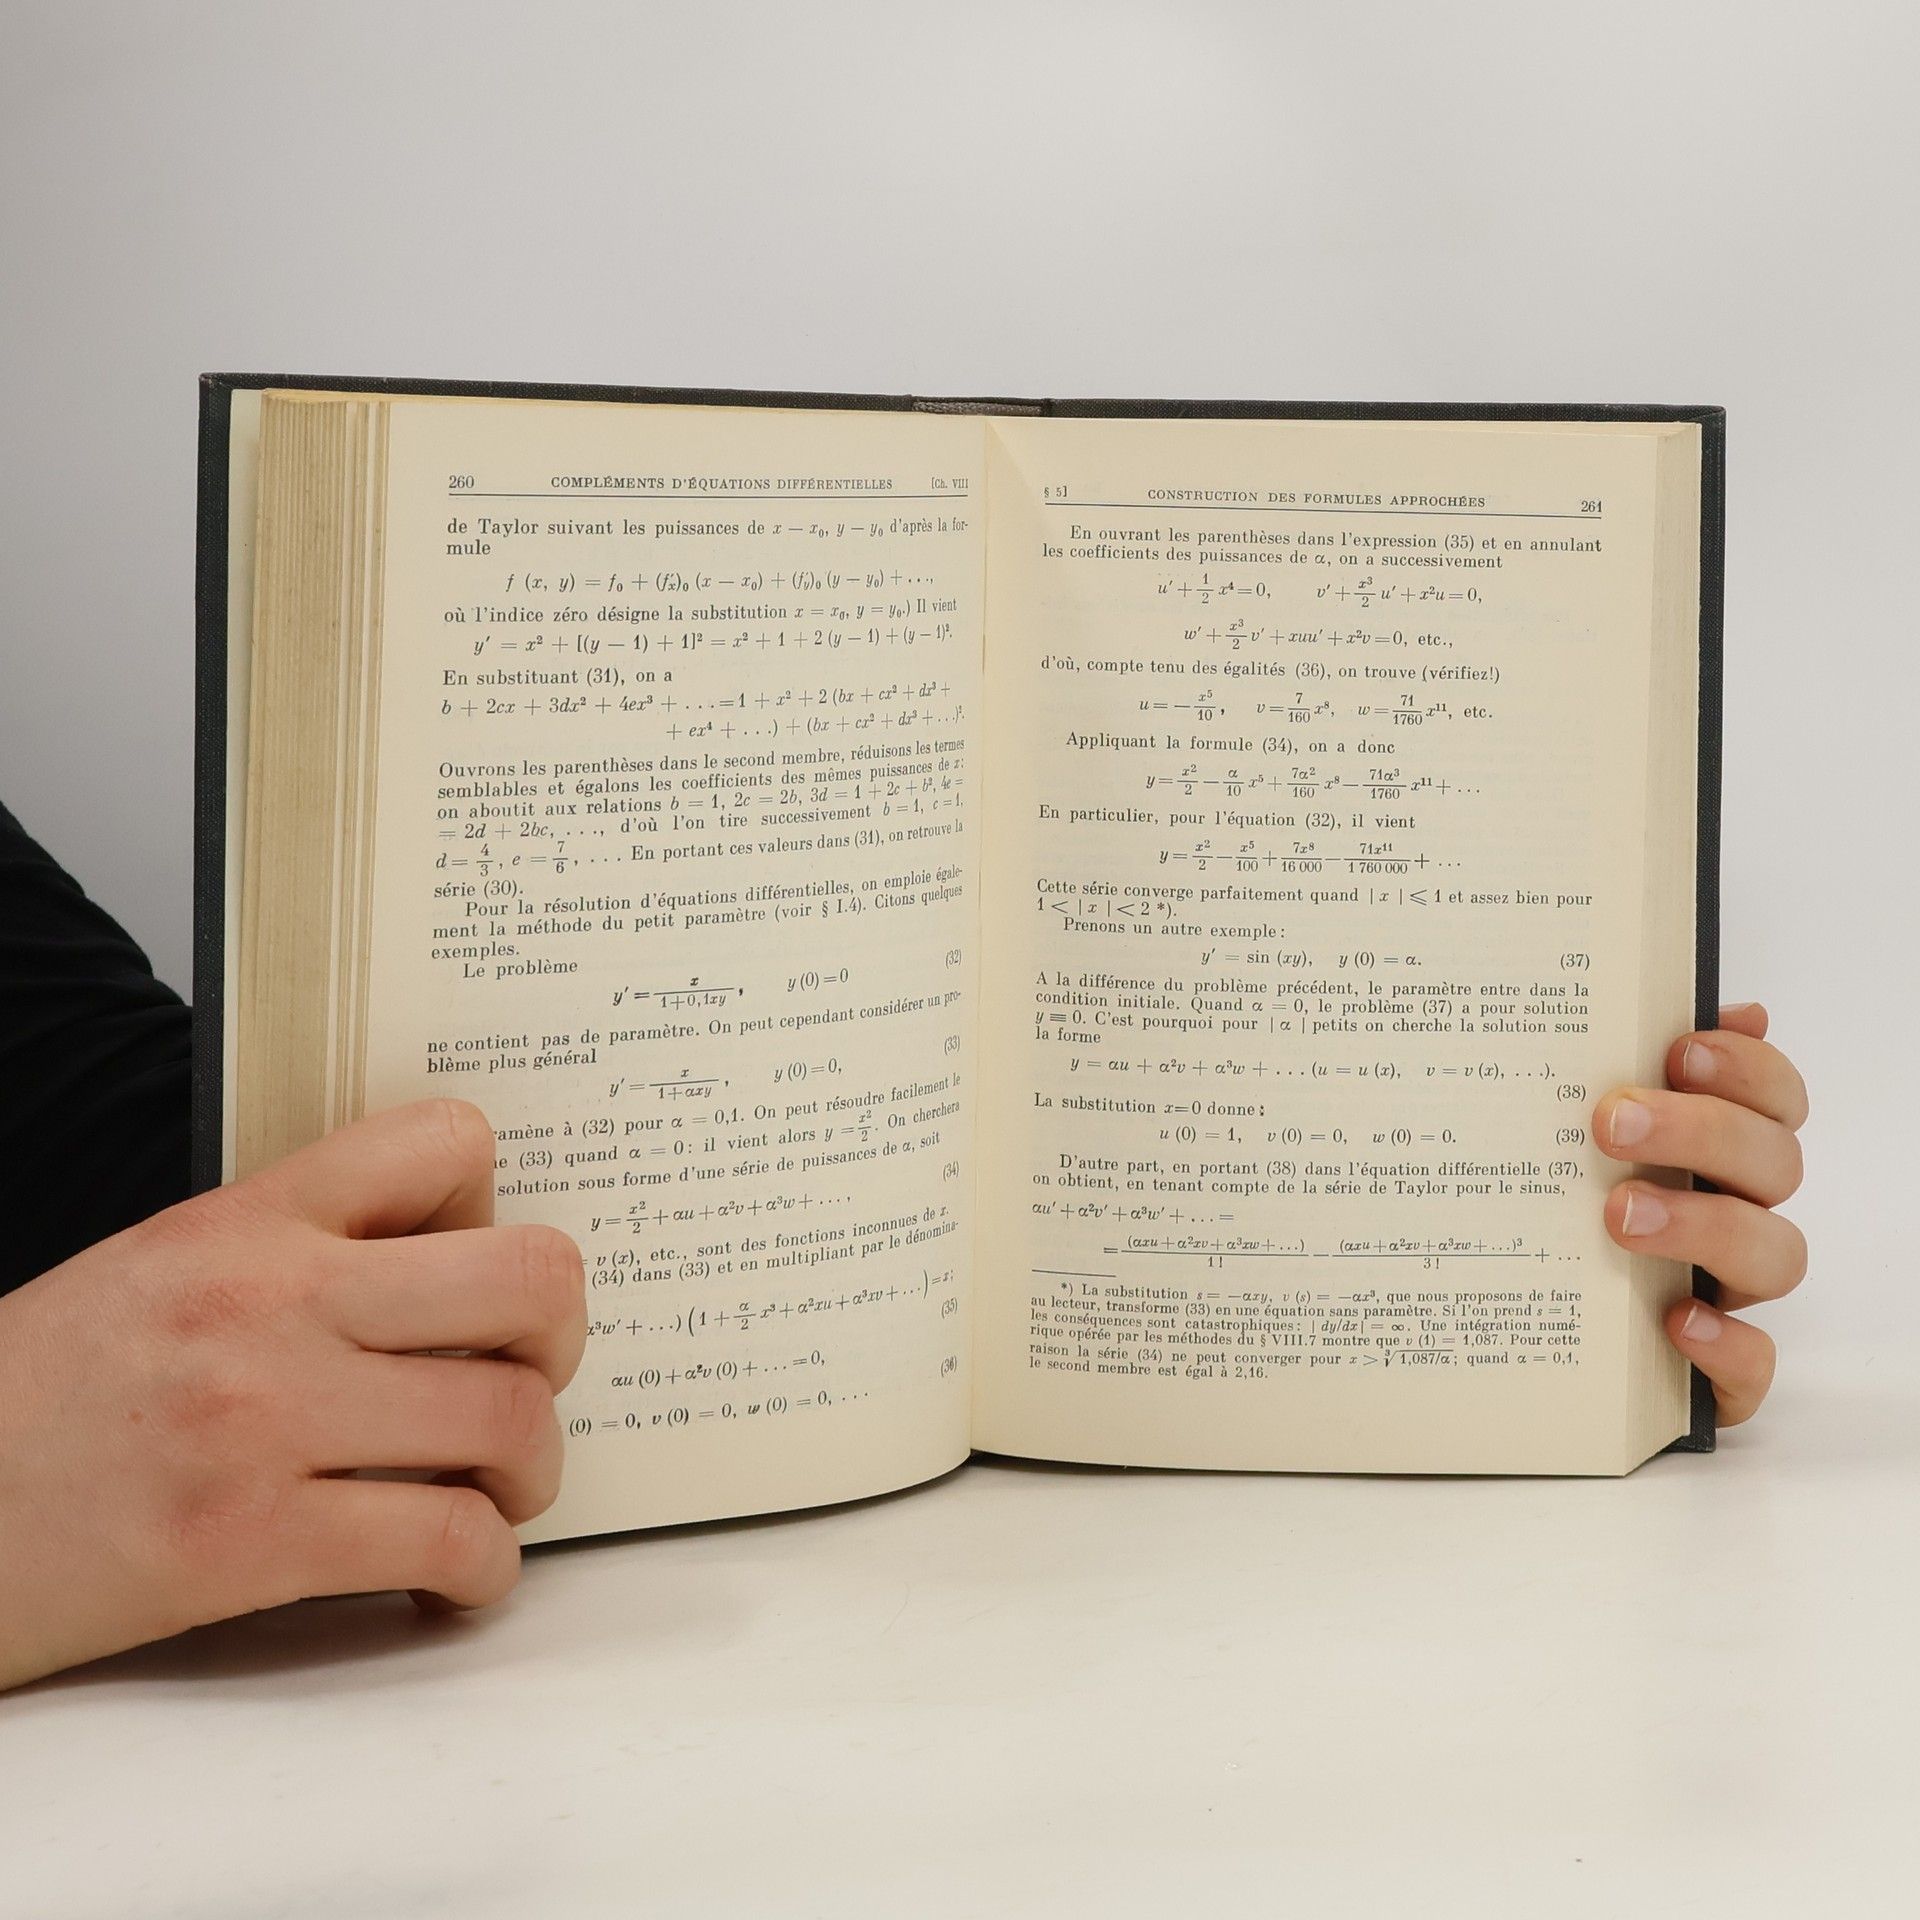 260 COMPLÉMENTS D'ÉQUATIONS DIFFÉRENTIELLES [Ch. VIII
de Taylor suivant les puissances de x — x₀, y — y₀ d'après la for-
mule
f (x, y) = f₀ + (f′ₓ)₀ (x — x₀) + (f′ᵧ)₀ (y — y₀) + ...,
où l'indice zéro désigne la substitution x = x₀, y = y₀.) Il vient
y′ = x² + [(y — 1) + 1]² = x² + 1 + 2 (y — 1) + (y — 1)².
En substituant (31), on a
b + 2cx + 3dx² + 4ex³ + ... = 1 + x² + 2 (bx + cx² + dx³ +
+ ex⁴ + ...) + (bx + cx² + dx³ + ...)².
Ouvrons les parenthèses dans le second membre, réduisons les termes
semblables et égalons les coefficients des mêmes puissances de x:
on aboutit aux relations b = 1, 2c = 2b, 3d = 1 + 2c + b², 4e =
= 2d + 2bc, ..., d'où l'on tire successivement b = 1, c = 1,
d = 4/3, e = 7/6, ... En portant ces valeurs dans (31), on retrouve la
série (30).
Pour la résolution d'équations différentielles, on emploie égale-
ment la méthode du petit paramètre (voir § I.4). Citons quelques
exemples.
Le problème
y′ = x/(1+0,1xy), y (0) = 0 (32)
ne contient pas de paramètre. On peut cependant considérer un pro-
blème plus général
y′ = x/(1+αxy), y (0) = 0, (33)
ramène à (32) pour α = 0,1. On peut résoudre facilement le
(33) quand α = 0: il vient alors y = x²/2. On cherchera
solution sous forme d'une série de puissances de α, soit
y = x²/2 + αu + α²v + α³w + ..., (34)
= v (x), etc., sont des fonctions inconnues de x.
(34) dans (33) et en multipliant par le dénomina-
α³w′ + ...) (1 + α/2 x³ + α²xu + α³xv + ...) = x; (35)
αu (0) + α²v (0) + ... = 0,
(0) = 0, v (0) = 0, w (0) = 0, ... (36)
§ 5] CONSTRUCTION DES FORMULES APPROCHÉES 261
En ouvrant les parenthèses dans l'expression (35) et en annulant
les coefficients des puissances de α, on a successivement
u′ + 1/2 x⁴ = 0, v′ + x³/2 u′ + x²u = 0,
w′ + x³/2 v′ + xuu′ + x²v = 0, etc.,
d'où, compte tenu des égalités (36), on trouve (vérifiez!)
u = — x⁵/10, v = 7/160 x⁸, w = 71/1760 x¹¹, etc.
Appliquant la formule (34), on a donc
y = x²/2 — α/10 x⁵ + 7α²/160 x⁸ — 71α³/1760 x¹¹ + ...
En particulier, pour l'équation (32), il vient
y = x²/2 — x⁵/100 + 7x⁸/16 000 — 71x¹¹/1 760 000 + ...
Cette série converge parfaitement quand | x | ⩽ 1 et assez bien pour
1 < | x | < 2 *).
Prenons un autre exemple:
y′ = sin (xy), y (0) = α. (37)
A la différence du problème précédent, le paramètre entre dans la
condition initiale. Quand α = 0, le problème (37) a pour solution
y ≡ 0. C'est pourquoi pour | α | petits on cherche la solution sous
la forme
y = αu + α²v + α³w + ... (u = u (x), v = v (x), ...).
(38)
La substitution x=0 donne:
u (0) = 1, v (0) = 0, w (0) = 0. (39)
D'autre part, en portant (38) dans l'équation différentielle (37),
on obtient, en tenant compte de la série de Taylor pour le sinus,
αu′ + α²v′ + α³w′ + ... =
= (αxu + α²xv + α³xw + ...)/1! — (αxu + α²xv + α³xw + ...)³/3! + ...
*) La substitution s = —αxy, v (s) = —αx³, que nous proposons de faire
au lecteur, transforme (33) en une équation sans paramètre. Si l'on prend s = 1,
les conséquences sont catastrophiques: | dy/dx | = ∞. Une intégration numé-
rique opérée par les méthodes du § VIII.7 montre que v (1) = 1,087. Pour cette
raison la série (34) ne peut converger pour x > ∛1,087/α; quand α = 0,1,
le second membre est égal à 2,16.